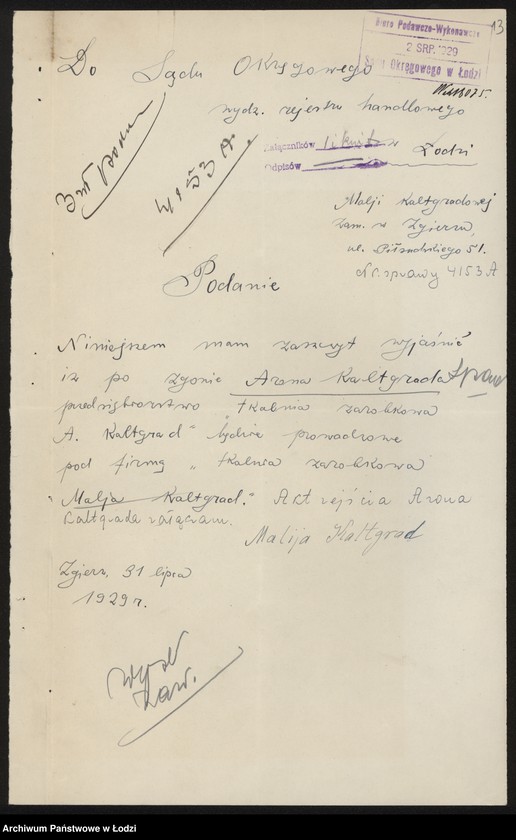 13
Biuro Podawczo-Wykonawcze
2 SRP. 1929
Sądu Okręgowego w Łodzi
Do Sądu Okręgowego
wydz. rejestru handlowego
w Łodzi
Załączników
Odpisów
4153 A.
Malji Kaltgradowej
zam. w Zgierzu,
ul. Piłsudskiego 51.
Nr. sprawy 4153 A
Podanie
Niniejszem mam zaszczyt wyjaśnić
iż po zgonie Arona Kaltgrada
przedsiębiorstwo "tkalnia zarobkowa
A. Kaltgrad" będzie prowadzone
pod firmą "tkalnia zarobkowa
"Malja Kaltgrad." Akt zejścia Arona
Kaltgrada załączam.
Malija Kaltgrad
Zgierz, 31 lipca
1929 r.
Archiwum Państwowe w Łodzi